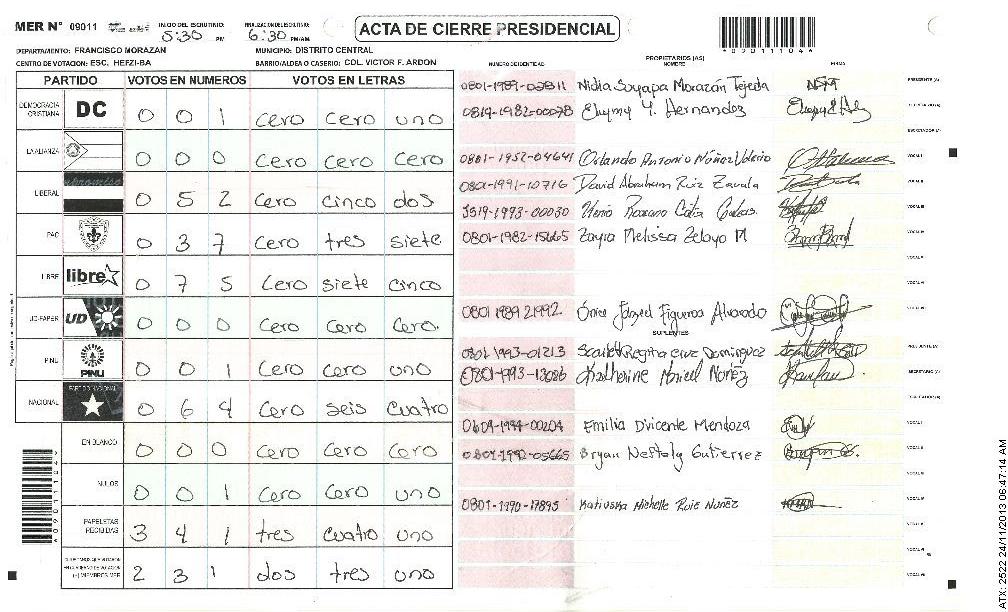 MER Nº 09011 INICIO DEL ESCRUTINIO 5:30 PM FINALIZACION DEL ESCRUTINIO 6:30 PM/AM ACTA DE CIERRE PRESIDENCIAL
DEPARTAMENTO: FRANCISCO MORAZAN MUNICIPIO: DISTRITO CENTRAL
CENTRO DE VOTACION: ESC. HEFZI-BA BARRIO/ALDEA O CASERIO: COL. VICTOR F. ARDON
PARTIDO VOTOS EN NUMEROS VOTOS EN LETRAS
DEMOCRACIA CRISTIANA DC 0 0 1 cero cero uno
LA ALIANZA 0 0 0 cero cero cero
LIBERAL 0 5 2 cero cinco dos
PAC 0 3 7 cero tres siete
LIBRE libre 0 7 5 cero siete cinco
UD-FAPER UD 0 0 0 cero cero cero.
PINU PINU 0 0 1 cero cero uno
NACIONAL PARTIDO NACIONAL 0 6 4 cero seis cuatro
EN BLANCO 0 0 0 cero cero cero
NULOS 0 0 1 cero cero uno
PAPELETAS RECIBIDAS 3 4 1 tres cuatro uno
(+) MIEMBROS MER 2 3 1 dos tres uno
NUMERO IDENTIDAD PROPIETARIOS (AS) NOMBRES FIRMA
Nidia Suyapa Morazán Tejeda PRESIDENTE (A)
0819-1982-00078 Y. Hernandez
0801-1952-04641 Orlando Antonio Núñez VOCAL I
0801-1991-10716 David Abraham Ruiz Zavala VOCAL II
VOCAL III
0801-1982-15665 Zayra Melissa Zelaya M VOCAL IV
0801 1989 21992 Figueroa Alvarado
SUPLENTES
0801 1993-01213 Scarlett Regina Cruz Dominguez
0801-1993-13086 Katherine Maricel Nuñez SECRETARIO (A)
0609-1994-00204 Emilia Divicente Mendoza VOCAL I
0801-1992-05665 Bryan Neftaly Gutierrez
0801-1990-17895 Katiuska Michelle Ruiz Nuñez
ATX: 2522 24/11/2013 06:47:14 AM